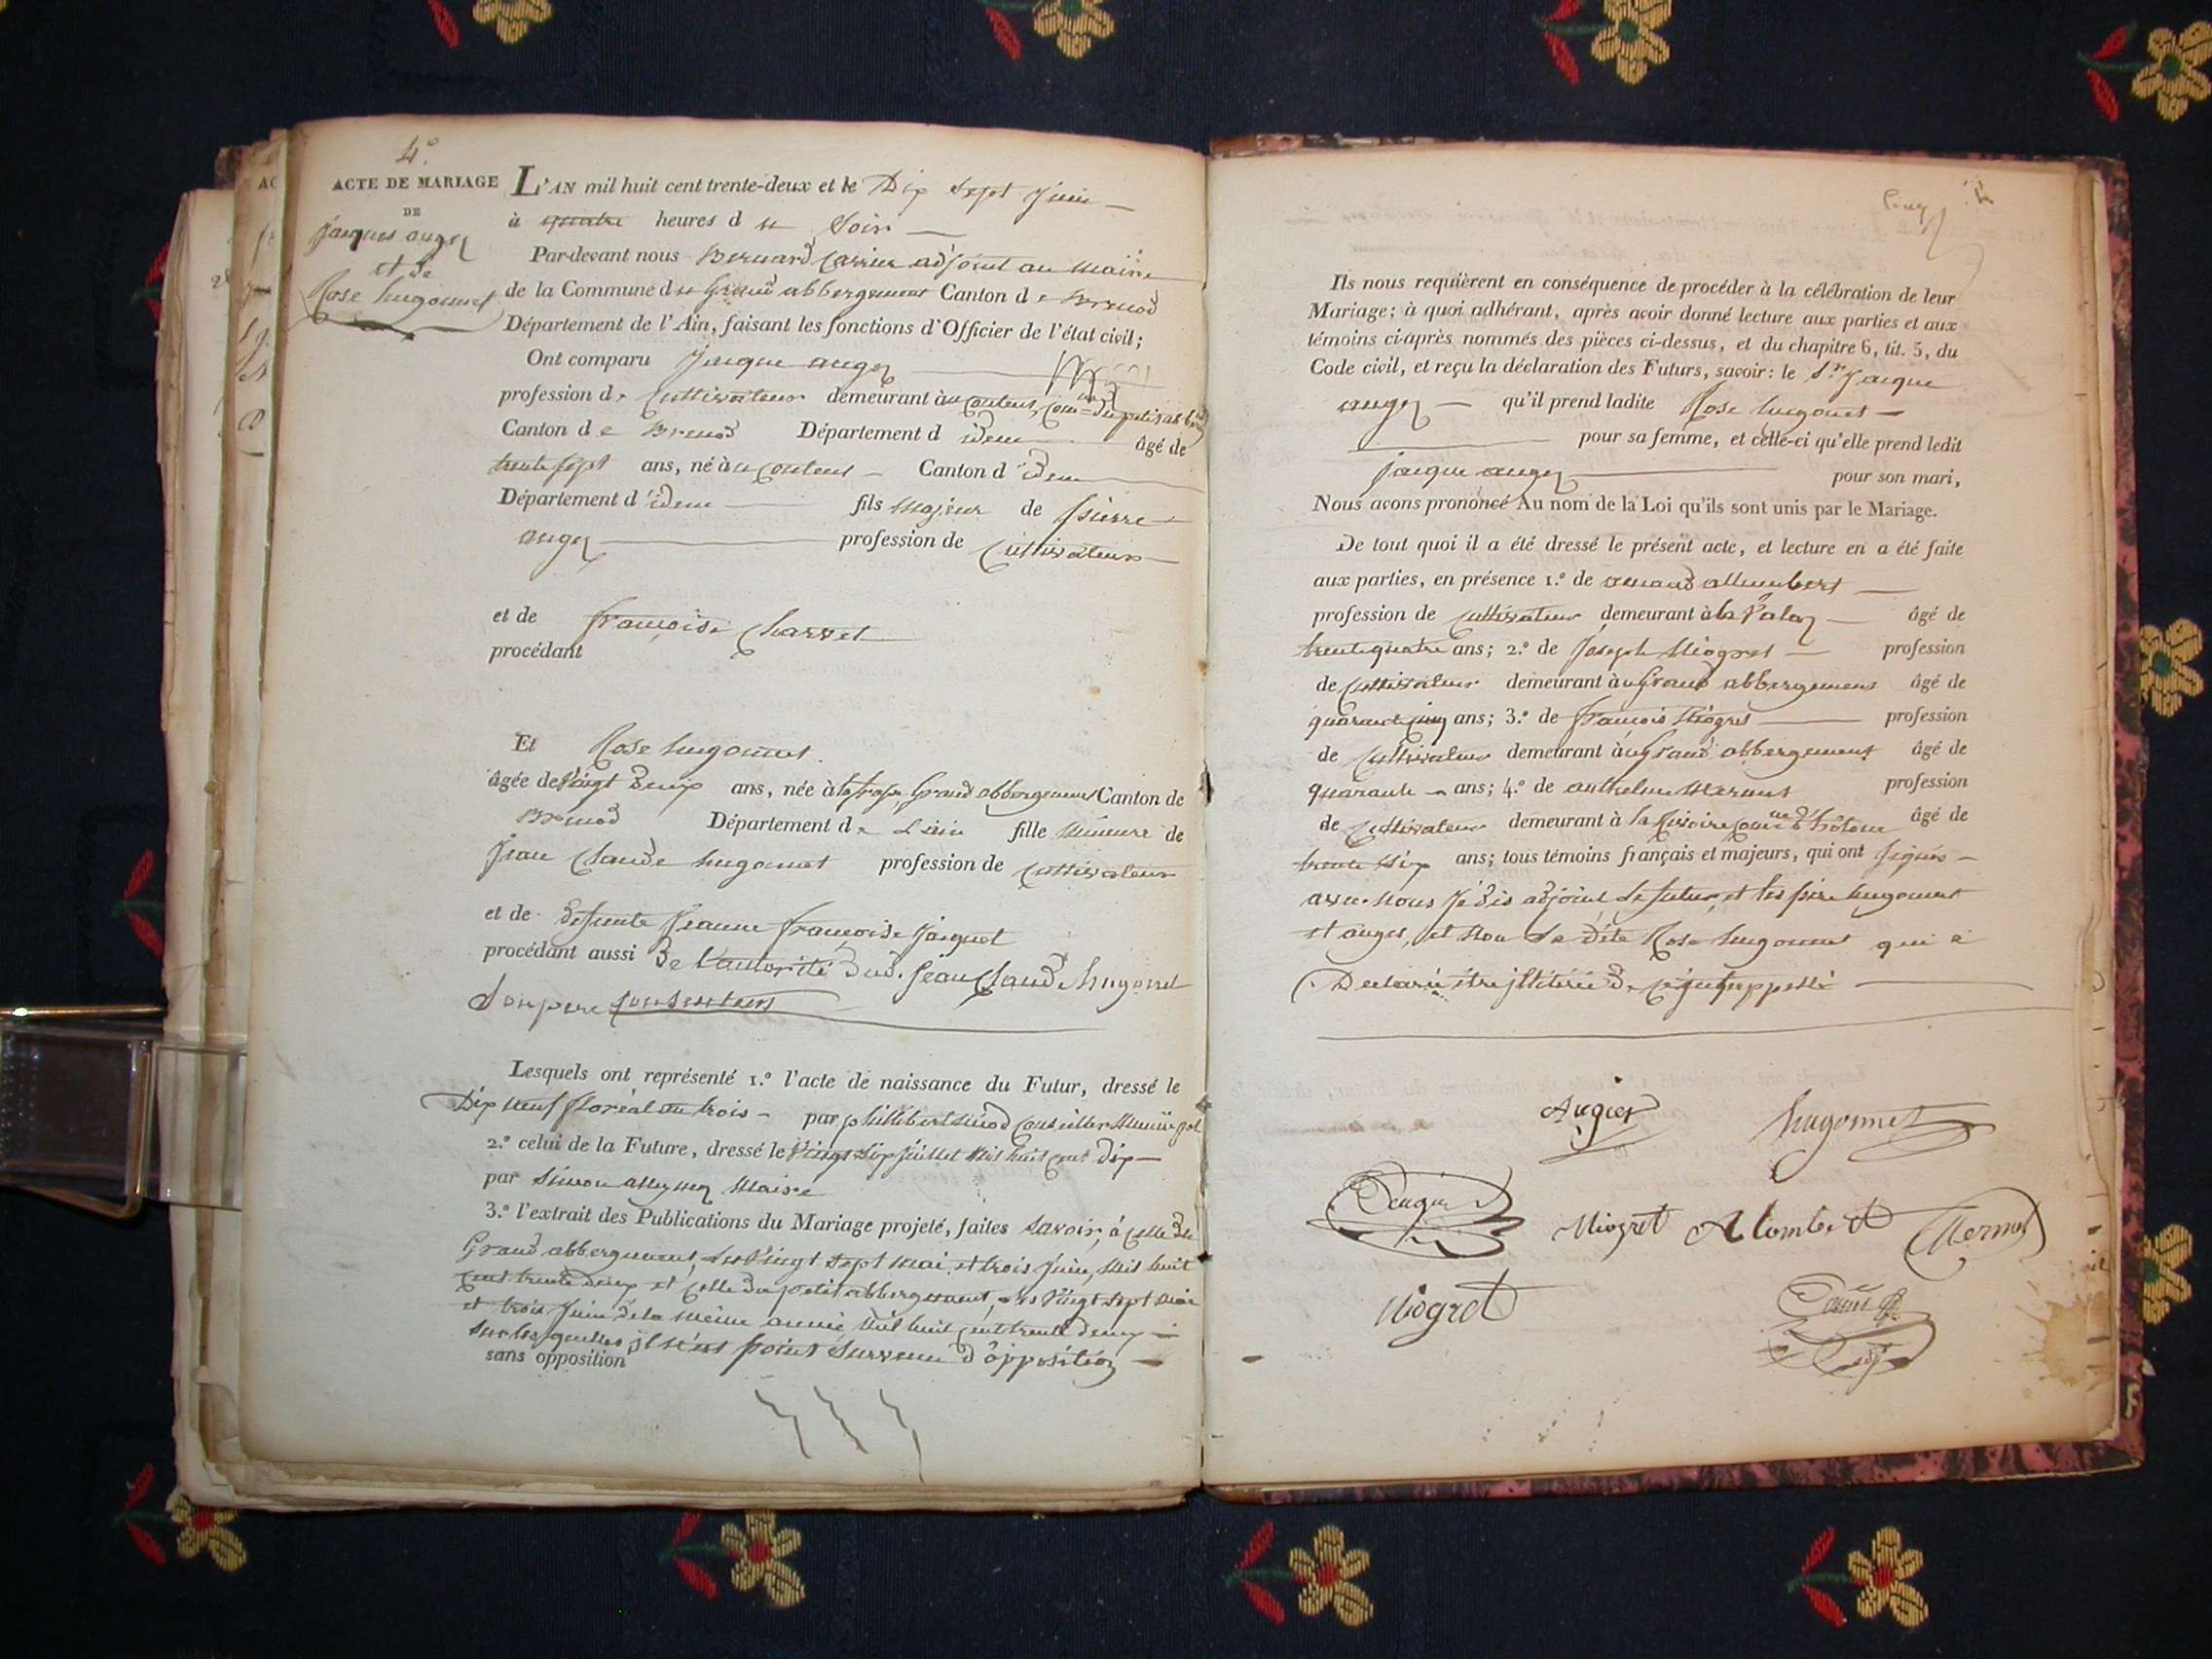 4.°
ACTE DE MARIAGE
DE
Jacques auger
et de
Rose hugonnet
L'AN mil huit cent trente-deux et le Dix Sept Juin
à quatre heures du Soir
Par-devant nous Bernard Carrier adjoint au maire
de la Commune du Grand abbergement Canton de Brenod
Département de l'Ain, faisant les fonctions d'Officier de l'état civil;
Ont comparu Jacque auger
profession de Cultivateur demeurant au du petit
Canton de Brenod Département d idem âgé de
trente sept ans, né au Canton d idem
Département d idem fils Majeur de pierre
auger profession de Cultivateur
et de françoise Charvet
procédant
Et Rose hugonnet
âgée de Vingt Deux ans, née à Grand abbergement Canton de
Brenod Département de L'ain fille Mineure de
Jean Claude hugonnet profession de Cultivateur
et de defunte Jeanne françoise Jacquet
procédant aussi De l'autorité dud. Jean Claude hugonnet
Son pere Consentant
Lesquels ont représenté 1.° l'acte de naissance du Futur, dressé le
Dix neuf floréal an trois par philibert Conseiller Municipal
2.° celui de la Future, dressé le Vingt Six Juillet Mil huit cent dix
par Simon Maire
3.° l'extrait des Publications du Mariage projeté, faites Savoir, à Celle du
Grand abbergement, les Vingt sept mai et trois Juin, Mil huit
Cent trente deux et Celle du petit abbergement, les Vingt sept mai
et trois Juin de la même année Mil huit Cent trente deux
Sur lesquelles il n'est point Survenu d'opposition
sans opposition
Cinq
Ils nous requièrent en conséquence de procéder à la célébration de leur
Mariage; à quoi adhérant, après avoir donné lecture aux parties et aux
témoins ci-après nommés des pièces ci-dessus, et du chapitre 6, tit. 5, du
Code civil, et reçu la déclaration des Futurs, savoir: le S.r Jacque
auger qu'il prend ladite Rose hugonet
pour sa femme, et celle-ci qu'elle prend ledit
Jacque auger pour son mari,
Nous avons prononcé Au nom de la Loi qu'ils sont unis par le Mariage.
De tout quoi il a été dressé le présent acte, et lecture en a été faite
aux parties, en présence 1.° de
profession de Cultivateur demeurant à la âgé de
trente quatre ans; 2.° de Joseph Miogret profession
de Cultivateur demeurant au Grand abbergement âgé de
quarante cinq ans; 3.° de francois Miogret profession
de Cultivateur demeurant au Grand abbergement âgé de
quarante ans; 4.° de anthelme Mermet profession
de Cultivateur demeurant à la âgé de
trente Six ans; tous témoins français et majeurs, qui ont Signés
avec Nous Jédis adjoint Le futur, et les père hugonnet
et auger, et Non La Dite Rose hugonnet qui a
Declaré être illitérée de Ce
Augier
hugonnet
Miogret Alombert Mermet
Miogret